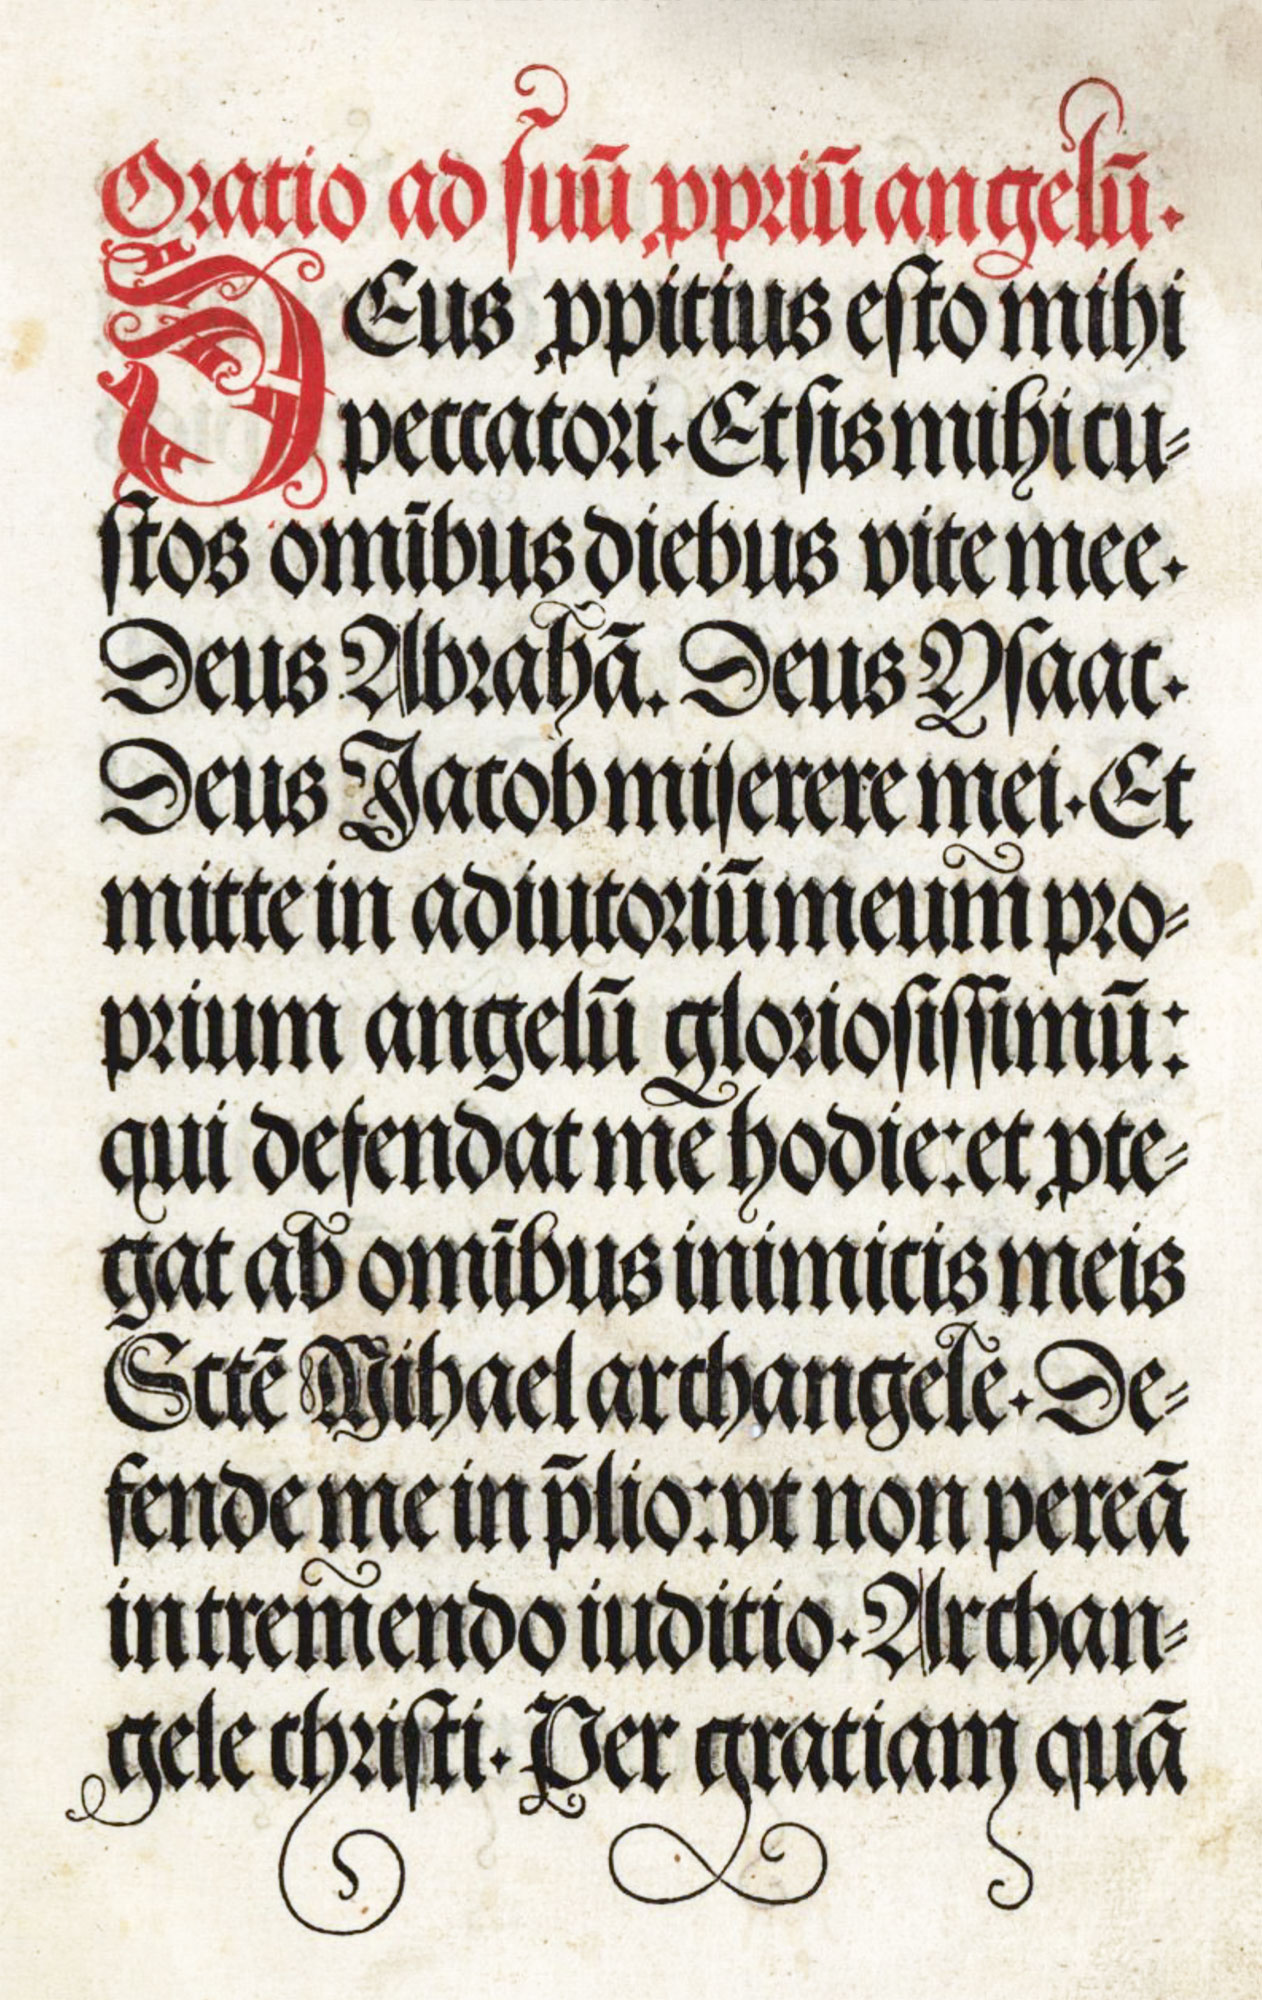 Oratio ad ſuū ꝓpriū angelū.
DEus ꝓpitius eſto mihi
peccatori. Et ſis mihi cu⸗
ſtos om̄ibus diebus vite mee.
Deus Abrahā. Deus Yſaac.
Deus Jacob miſerere mei. Et
mitte in adiutoriū meum pro⸗
prium angelū glorioſiſſimū:
qui defendat me hodie: et ꝓte⸗
gat ab om̄ibus inimicis meis
Sctē Mihael archangele. De⸗
fende me in p̄lio: vt non pereā
in tremendo iuditio. Archan⸗
gele chriſti. Per gratiam quā